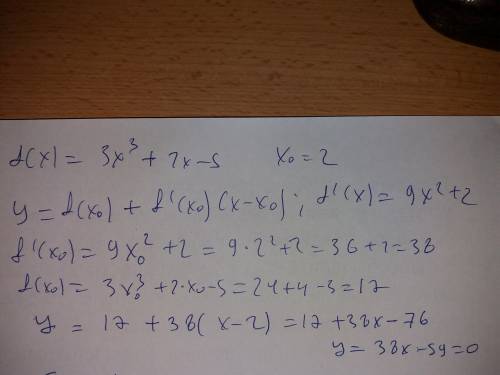 f(x) = 3x³ + 2x - 5 x₀ = 2
y = f(x₀) + f'(x₀)(x-x₀); f'(x) = 9x²+2
f'(x₀) = 9x₀² + 2 = 9·2²+2 = 36+2=38
f(x₀) = 3x₀³ + 2·x₀ - 5 = 24+4-5 = 17
y = 17 + 38(x-2) = 17 + 38x - 76
y = 38x - 59 = 0